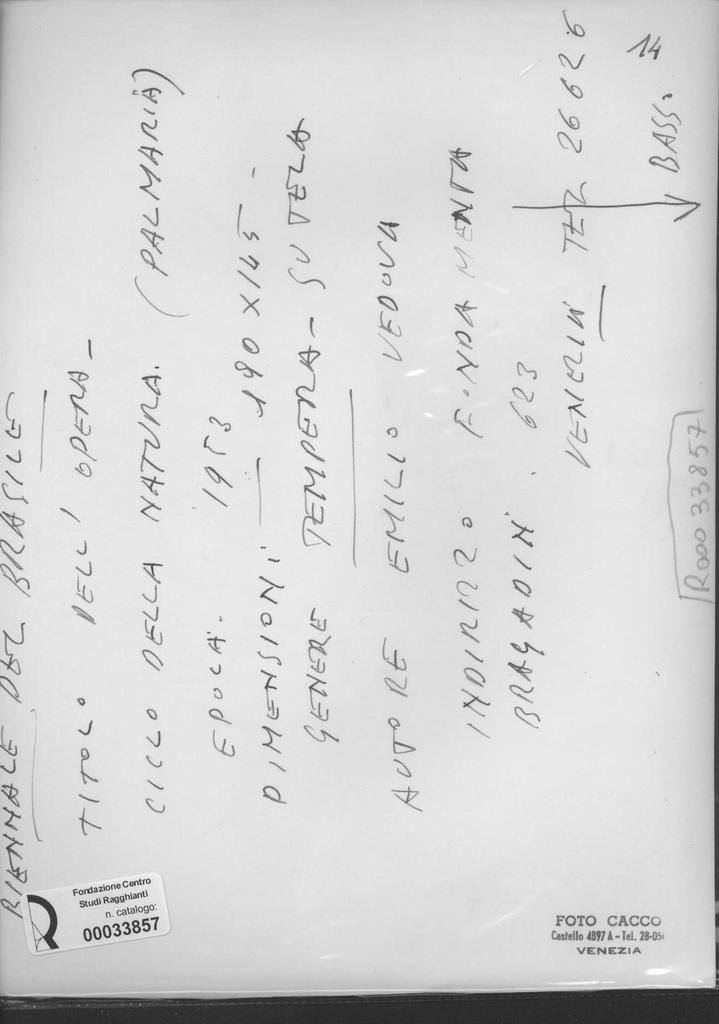 BIENNALE DEL BRASILE
TITOLO DELL' OPERA -
CICLO DELLA NATURA. (PALMARIA)
EPOCA. 1953
DIMENSIONI - 190 X 145 -
GENERE TEMPERA - SU TELA
AUTORE EMILIO VEDOVA
INDIRIZZO FONDAMENTA
BRAGADIN. 623
VENEZIA TEL 26626
BASSO
14
R000 33857
Fondazione Centro
Studi Ragghianti
n. catalogo:
00033857
FOTO CACCO
Castello 4897 A - Tel. 28-05
VENEZIA